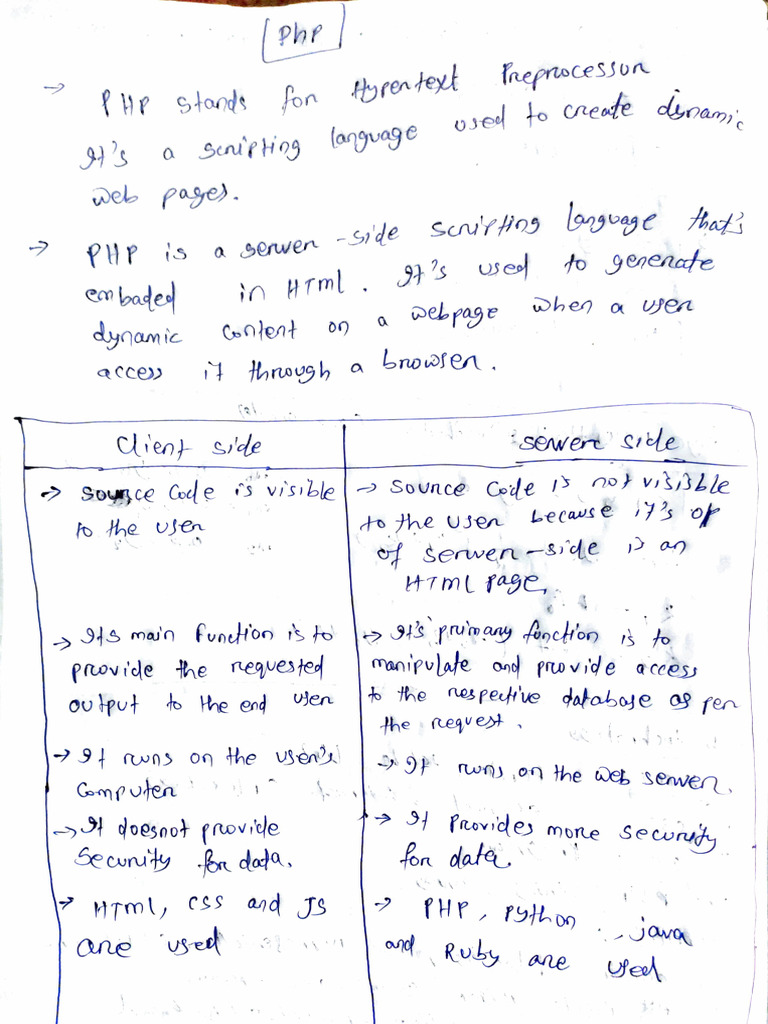 Php
→ PHP stands for Hypertext Preprocessor
It's a scripting language used to create dynamic
web pages.
→ PHP is a server-side scripting language that's
embaded in HTML. It's used to generate
dynamic content on a webpage when a user
access it through a browser.
Client side
→ source Code is visible
to the user
→ Its main function is to
provide the requested
output to the end user
→ It runs on the user's
Computer
→ It doesnot provide
Security for data.
→ HTML, CSS and JS
are used
server side
→ source Code is not visible
to the user because it's op
of server-side is an
HTML page.
→ It's primary function is to
manipulate and provide access
to the respective database as per
the request.
→ It runs on the web server.
→ It Provides more security
for data.
→ PHP, Python, java
and Ruby are used